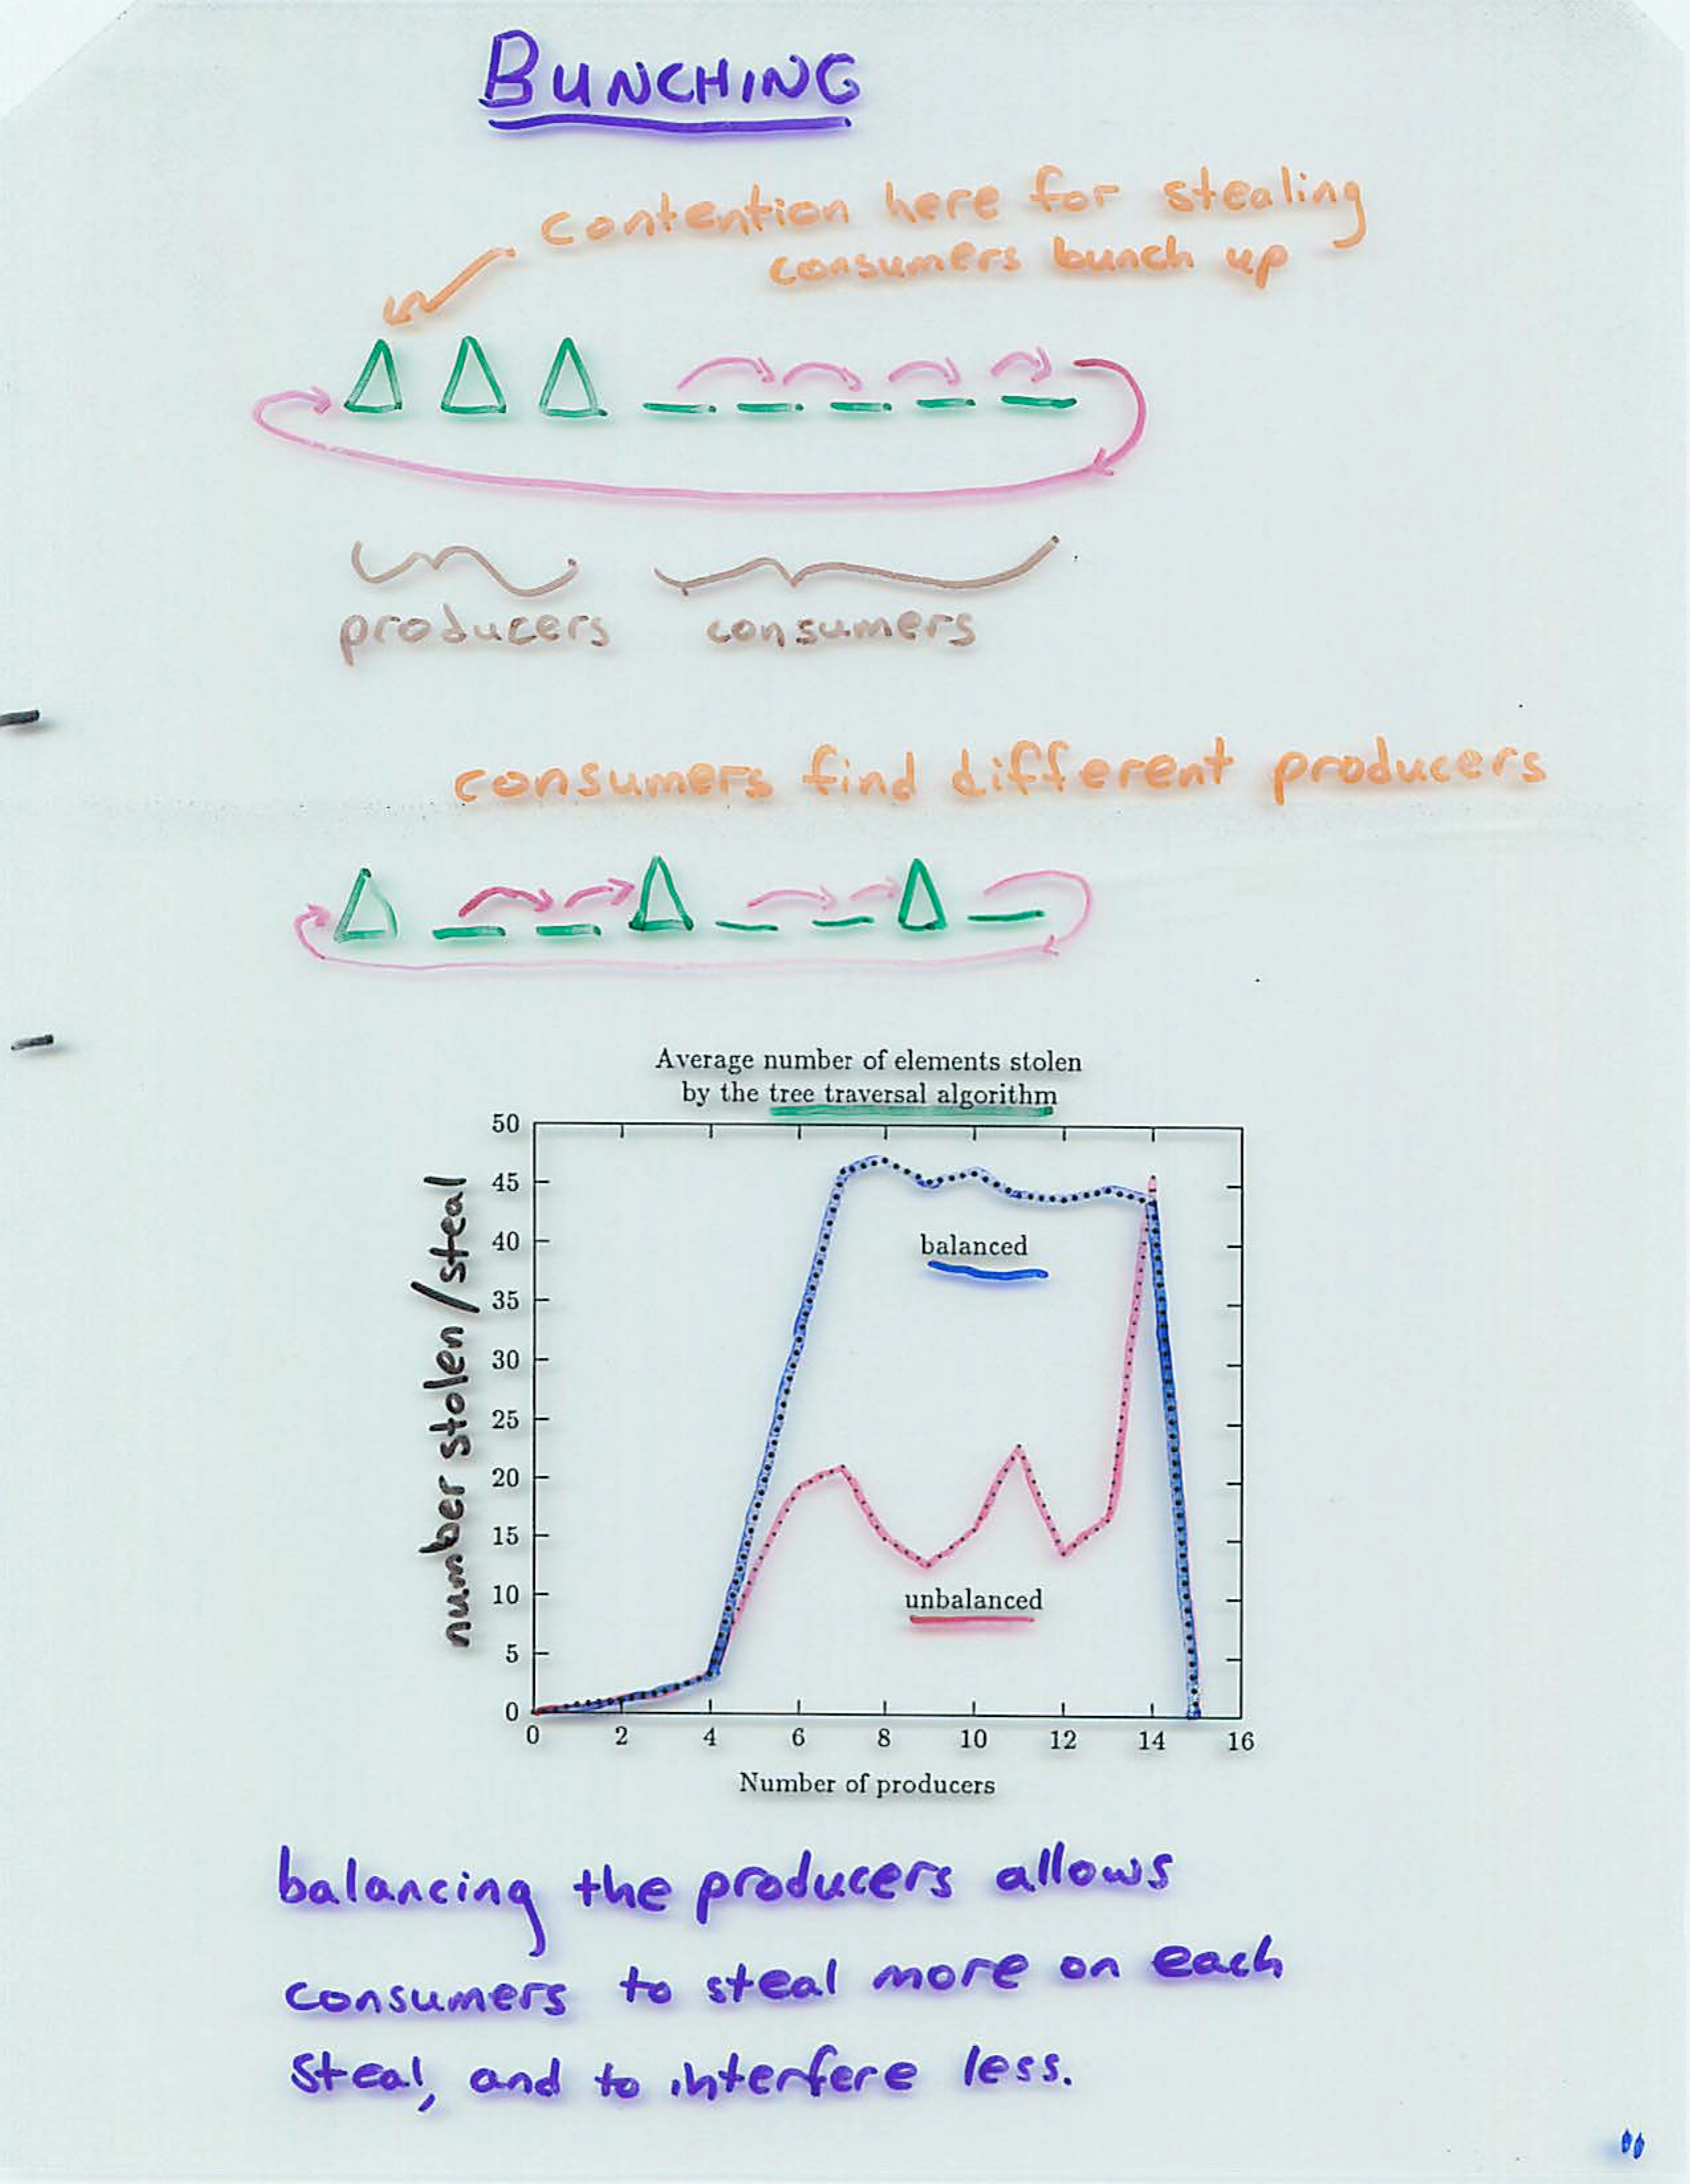 BUNCHING
contention here for stealing
consumers bunch up
producers consumers
consumers find different producers
Average number of elements stolen
by the tree traversal algorithm
number stolen/steal
50
45
40
35
30
25
20
15
10
5
0
balanced
unbalanced
0 2 4 6 8 10 12 14 16
Number of producers
balancing the producers allows
consumers to steal more on each
steal, and to interfere less.